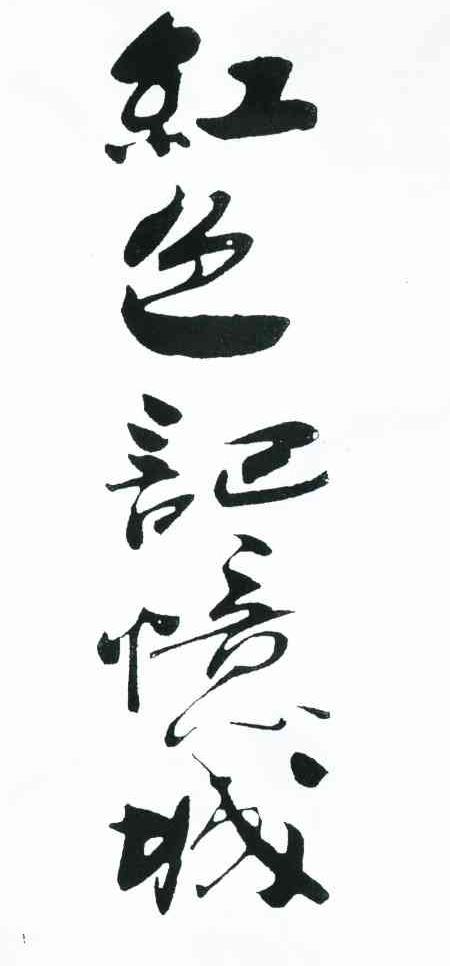 紅色記憶城